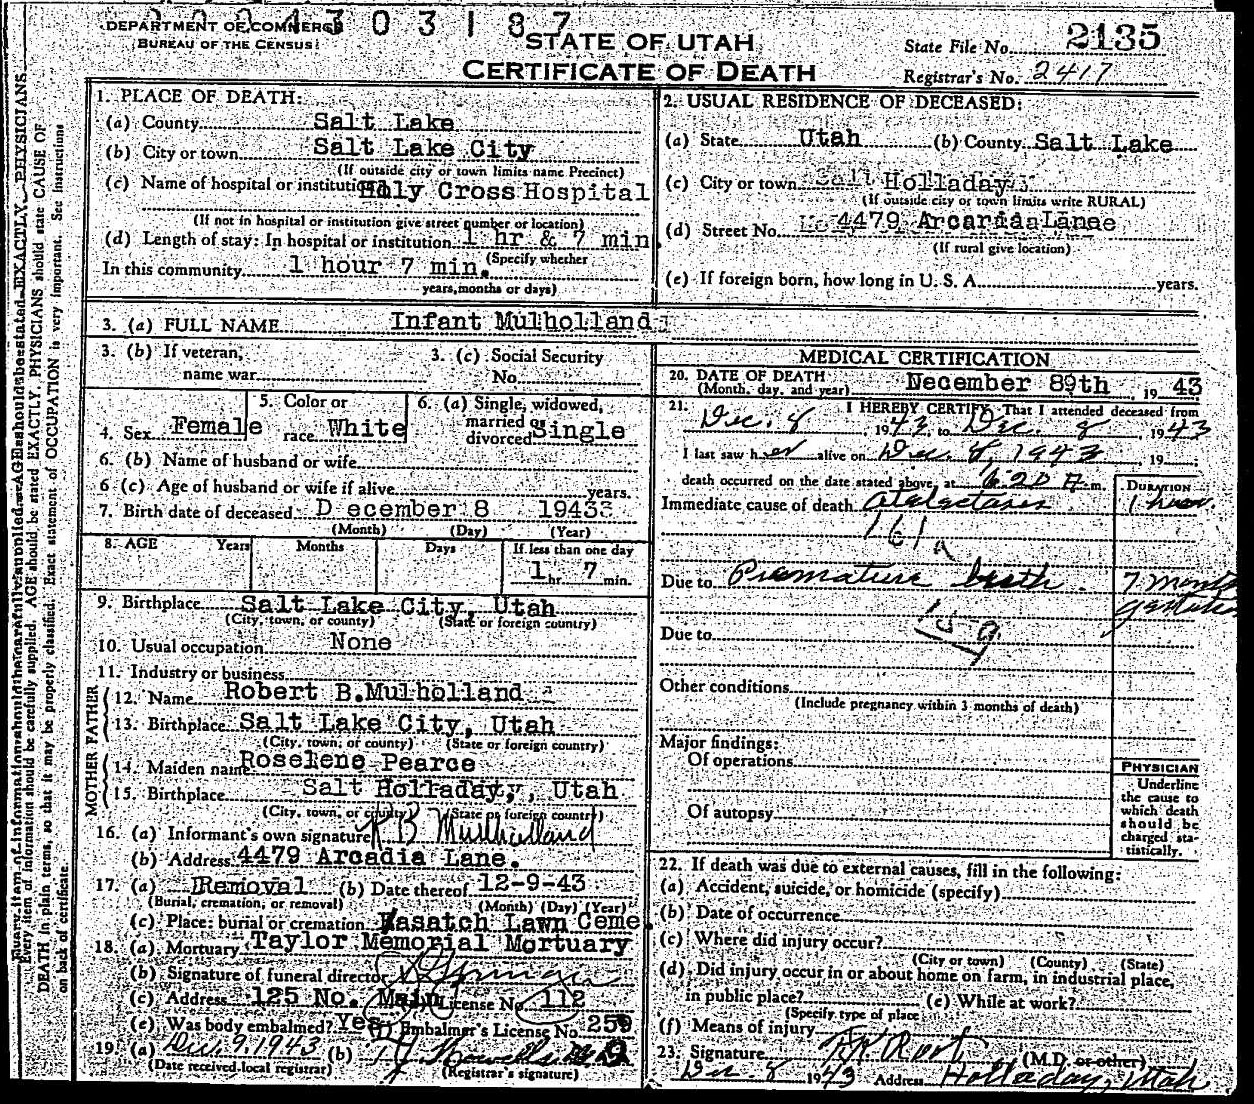 DEPARTMENT OF COMMERCE
BUREAU OF THE CENSUS
STATE OF UTAH
CERTIFICATE OF DEATH
State File No. 2135
Registrar's No. 2417
1. PLACE OF DEATH:
(a) County Salt Lake
(b) City or town Salt Lake City
(If outside city or town limits name Precinct)
(c) Name of hospital or institution Holy Cross Hospital
(If not in hospital or institution give street number or location)
(d) Length of stay: In hospital or institution 1 hr & 7 min.
(Specify whether
In this community 1 hour 7 min.
years, months or days)
2. USUAL RESIDENCE OF DECEASED:
(a) State Utah (b) County Salt Lake
(c) City or town Holladay
(If outside city or town limits write RURAL)
(d) Street No. 4479 Arcadia Lane
(If rural give location)
(e) If foreign born, how long in U. S. A. years.
3. (a) FULL NAME Infant Mulholland
3. (b) If veteran, name war
3. (c) Social Security No.
4. Sex Female
5. Color or race White
6. (a) Single, widowed, married or divorced Single
6. (b) Name of husband or wife
6 (c) Age of husband or wife if alive years.
7. Birth date of deceased December 8 1943
(Month) (Day) (Year)
8. AGE Years Months Days If less than one day
1 hr. 7 min.
9. Birthplace Salt Lake City, Utah
(City, town, or county) (State or foreign country)
10. Usual occupation None
11. Industry or business
FATHER
12. Name Robert B. Mulholland
13. Birthplace Salt Lake City, Utah
(City, town, or county) (State or foreign country)
MOTHER
14. Maiden name Roselene Pearce
15. Birthplace Holladay, Utah
(City, town, or county) (State or foreign country)
16. (a) Informant's own signature R B Mulholland
(b) Address 4479 Arcadia Lane.
17. (a) Removal (b) Date thereof 12-9-43
(Burial, cremation, or removal) (Month) (Day) (Year)
(c) Place: burial or cremation Wasatch Lawn Ceme.
18. (a) Mortuary Taylor Memorial Mortuary
(b) Signature of funeral director
(c) Address 125 No. Main License No. 112
(e) Was body embalmed? Yes (f) Embalmer's License No. 259
19. (a) Dec. 9, 1943 (b)
(Date received local registrar) (Registrar's signature)
MEDICAL CERTIFICATION
20. DATE OF DEATH
(Month, day, and year) December 8th, 1943
21. I HEREBY CERTIFY, That I attended deceased from
Dec. 8, 1943, to Dec. 8, 1943
I last saw her alive on Dec. 8, 1943, 19
death occurred on the date stated above, at 6:20 P m.
DURATION
Immediate cause of death Atelectasis 1 hour.
161a
Due to Premature birth 7 months gestation
Due to 159
Other conditions
(Include pregnancy within 3 months of death)
Major findings:
Of operations
Of autopsy
PHYSICIAN
Underline the cause to which death should be charged statistically.
22. If death was due to external causes, fill in the following:
(a) Accident, suicide, or homicide (specify)
(b) Date of occurrence
(c) Where did injury occur?
(City or town) (County) (State)
(d) Did injury occur in or about home on farm, in industrial place, in public place? (e) While at work?
(Specify type of place
(f) Means of injury
23. Signature Root (M.D. or other)
Dec. 8 1943 Address Holladay, Utah
Every item of information should be carefully supplied. AGE should be stated EXACTLY. PHYSICIANS should state CAUSE OF
DEATH in plain terms, so that it may be properly classified. Exact statement of OCCUPATION is very important. See Instructions
on back of certificate.